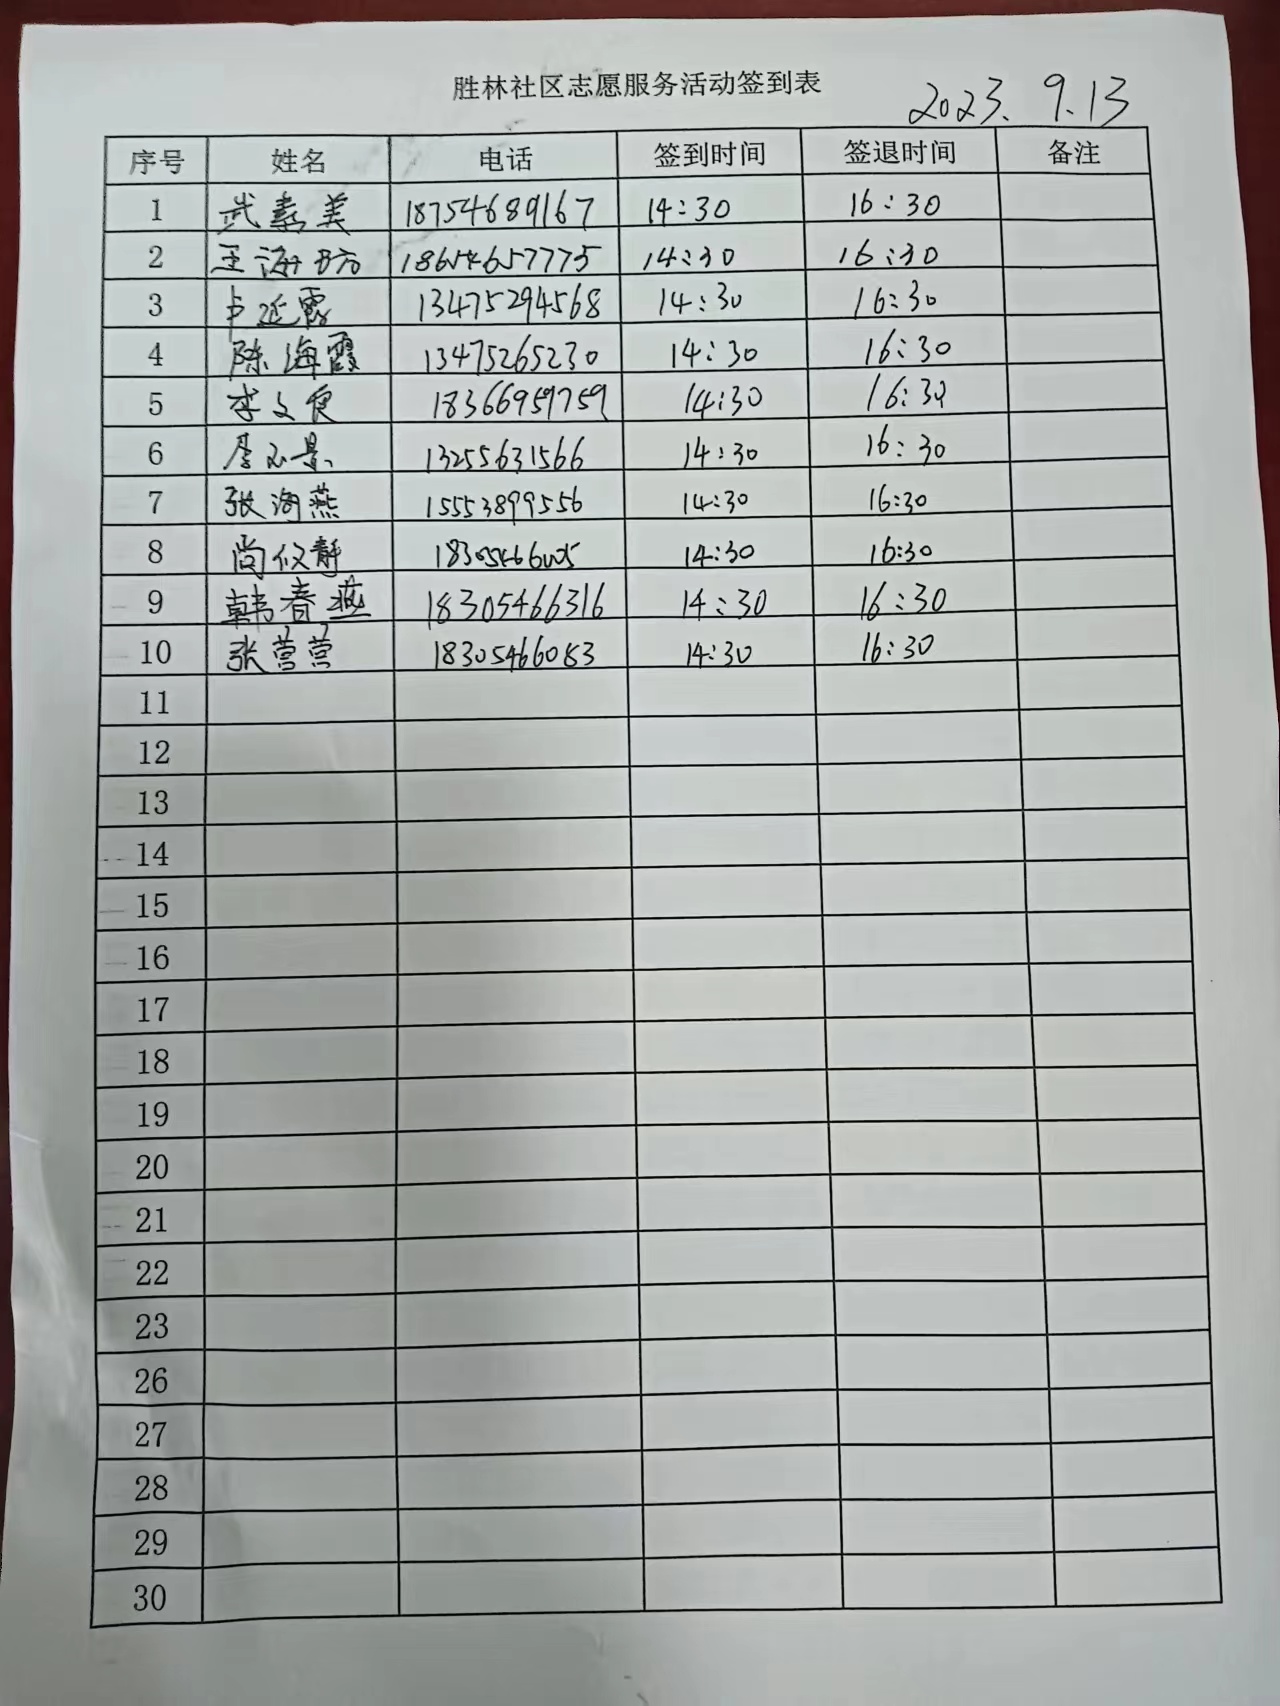 胜林社区志愿服务活动签到表
2023.9.13
序号 姓名 电话 签到时间 签退时间 备注
1 武嘉美 18754689167 14:30 16:30
2 王海芳 18654657775 14:30 16:30
3 卢延霞 13475294568 14:30 16:30
4 陈海霞 13475265230 14:30 16:30
5 李文俊 18366959759 14:30 16:30
6 13255631566 14:30 16:30
7 张海燕 15553899556 14:30 16:30
8 尚仪静 14:30 16:30
9 韩春燕 18305466316 14:30 16:30
10 张营营 18305466083 14:30 16:30
11
12
13
14
15
16
17
18
19
20
21
22
23
26
27
28
29
30